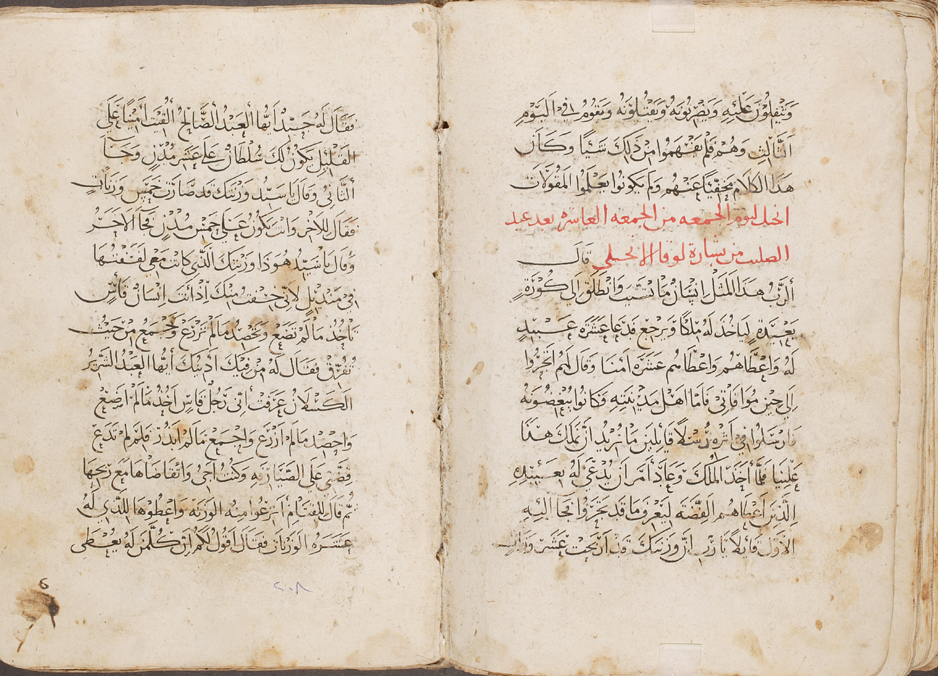 وَيَتفلُون عَليْه وَيَضْربُونهُ وَيَقتُلونَه وَيَقوُم في اليَوْم
الثَالِث وَهُم فلم يفهمُوا من ذلك شَيًا وَكان
هَذا الكلام مخفيًا عَنهُم ولم يكونُوا يَعلمُوا المقُولات
انجيل ليوم الجمعه من الجمعه العاشره بعد عيد
الصليب من بشارة لوقا الانجيلي قالَ
الرّب هَذا المَثل انسَان مَا نسيب وَانطلق الى كُورَةٍ
بعيْدَةٍ ليَاخذ لهُ مُلكًا وَيرجع فدَعا عَشَرَة عَبيْدٍ
لهُ وَاعْطاهُم وَاعطاهُم عشرَة امنَا وَقال لهُم اتجرُوا
الى حِين مُوَافاتي فامّا اهل مَدينتِه فكانُوا يُبغضُونهُ
وَارسَلوُا في اثره رُسُلاً قايلين مَا نُريْد ان يملك هَذا
عَليْنا فلمّا أخذ المُلك وَعَادَ أمَر ان يُدْعَى لهُ بعَبيْدِه
الذين اعْطَاهُم الفضّة ليَعْرف مَا قد تجرُوا فجَا اليْه
الاوّل قايلاً يَا رَب ان وَزنتك قد أرْبحت عَشر وَزنات
فقال لهُ حَسَنًا أيّها العَبْد الصَّالح الفيت امْينًا عَلى
القليْل يكوُن لك سُلطان عَلى عَشر مُدْن وَجَآ
الثَّاني وَقال يَا سَيّد وَزنتك قد صَارت خَمس وَزنات
فقال للاخر وَانت تكون عَلى خَمْس مُدْن فجَآ الاخَر
وَقال يَا سَيّد هُوَذا وَزنتك الّتي كانت مَعي لففتهَا
في منديْل لاني خفت منك اذ أنت انسَان قاسٍ
تأخذ مَا لم تضع وتحصُد مَا لم تزرَع وتجمع من حَيث
تفرق فقال لهُ من فيك ادينك أيّها العَبْد الشّرير
الكسْلان عَرفت اني رَجل قاسٍ آخذ مَا لم اضع
وَاحصد مَا لم أزرَع وَاجمع مَا لم ابذر فلم لم تدَع
فِضّتي على الصّيَارفه وَكنتُ أجي وَاتقاضاها مَع ربحهَا
ثم قال للقيام أنزعُوا منهُ الوَزنه وَاعطوهَا للّذي لهُ
عَشرَه الوَزنات فقال اقول لكم ان كلّ من لهُ يعْطى
٢٠٨
6